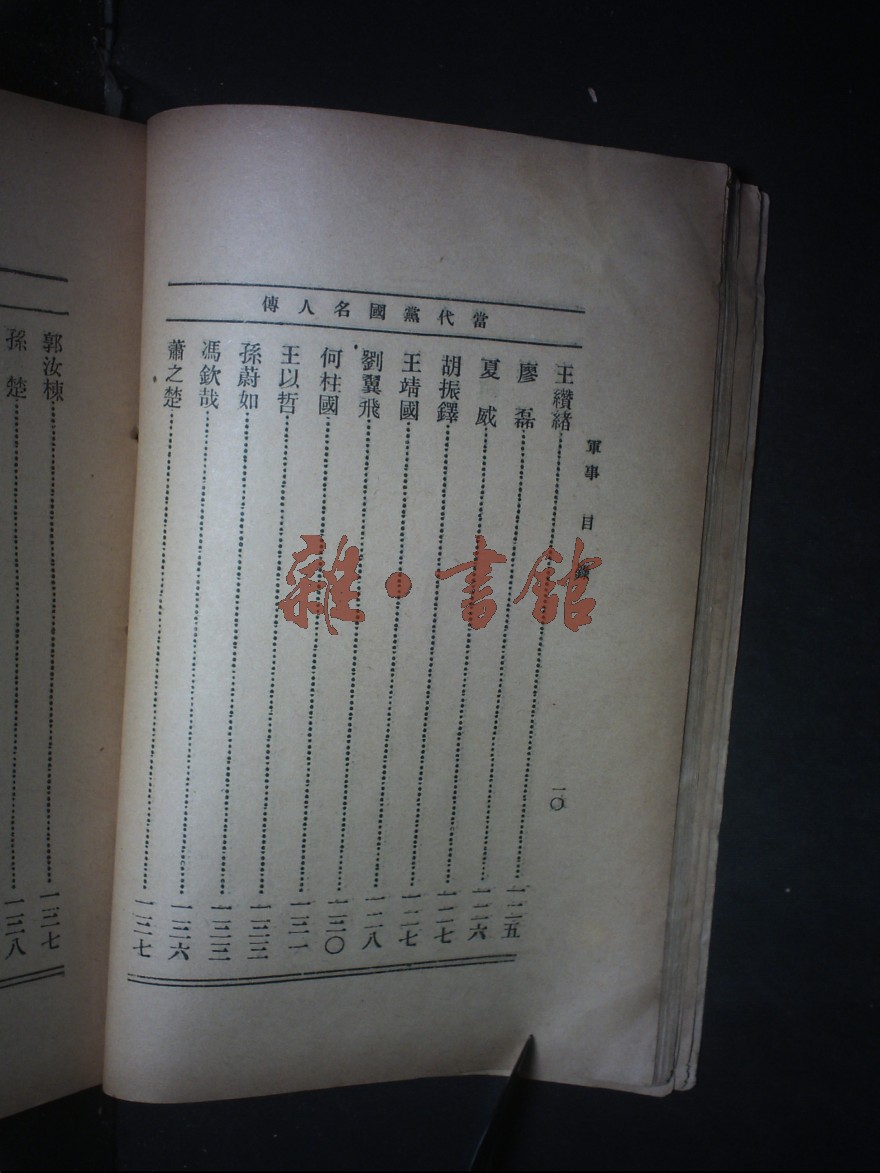 當代黨國名人傳
軍事 目錄
一〇
王纘緒……一二五
廖磊……一二六
夏威……一二七
胡振鐸……一二七
王靖國……一二八
劉翼飛……一三〇
何柱國……一三一
王以哲……一三三
孫蔚如……一三三
馮欽哉……一三六
蕭之楚……一三七
郭汝棟……一三七
孫楚……一三八
雜·書館